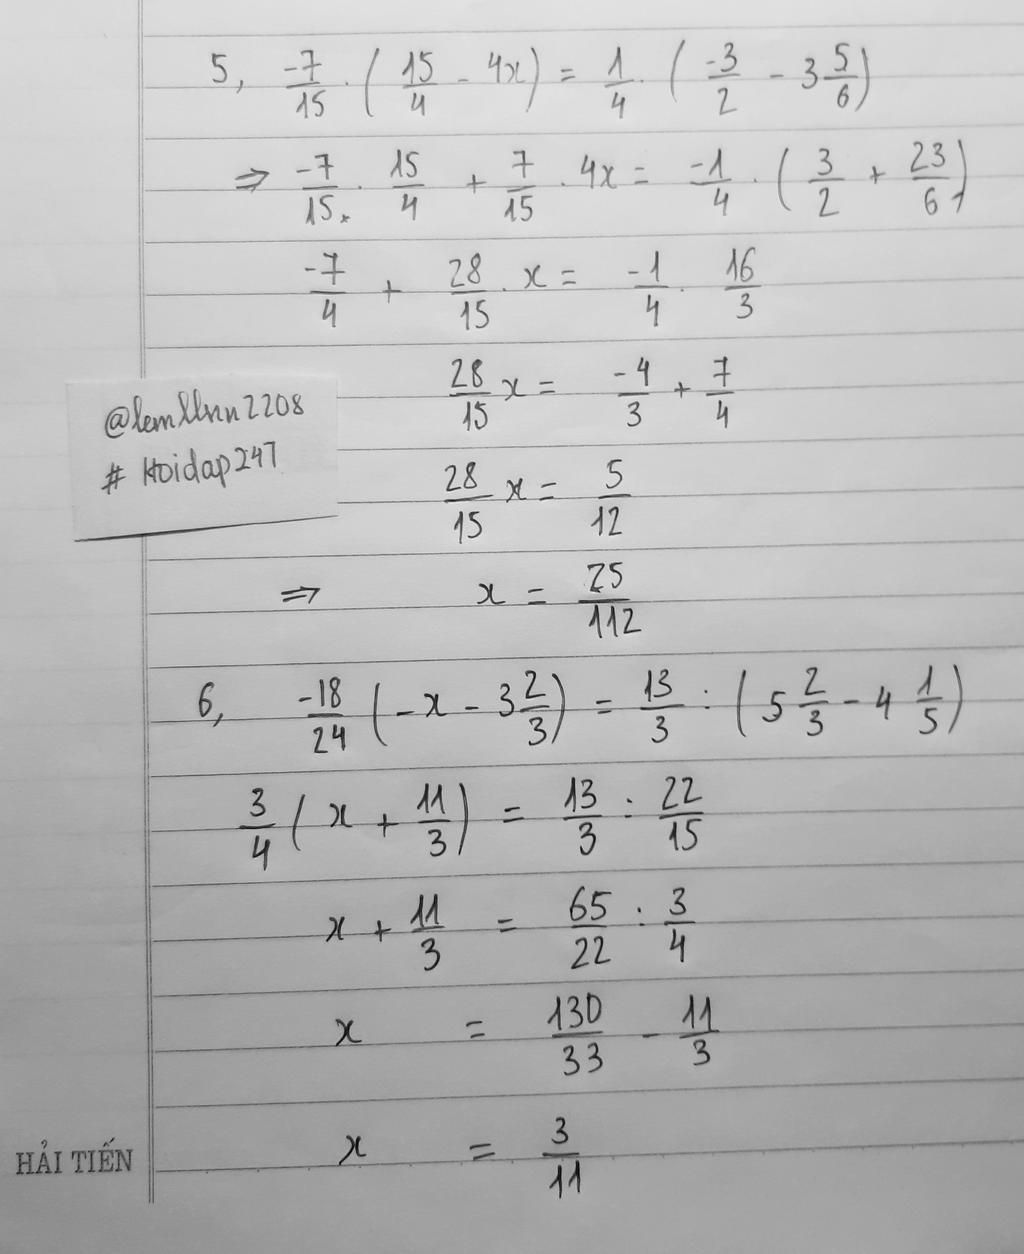 5, -7/15 . ( 15/4 - 4x ) = 1/4 . ( -3/2 - 3 5/6 )
⇒ -7/15 . 15/4 + 7/15 . 4x = -1/4 . ( 3/2 + 23/6 )
-7/4 + 28/15 . x = -1/4 . 16/3
28/15 x = -4/3 + 7/4
@lemllnn2208
# Hoidap247
28/15 x = 5/12
⇒ x = 25/112
6, -18/24 ( - x - 3 2/3 ) = 13/3 : ( 5 2/3 - 4 1/5 )
3/4 ( x + 11/3 ) = 13/3 : 22/15
x + 11/3 = 65/22 : 3/4
x = 130/33 - 11/3
x = 3/11
HẢI TIẾN